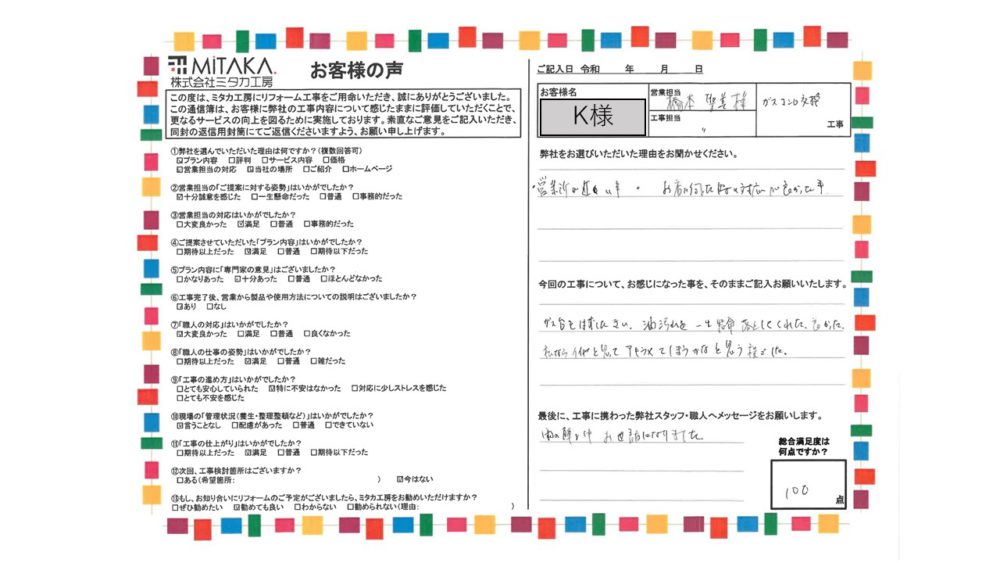 MiTAKA
株式会社ミタカ工房
お客様の声
この度は、ミタカ工房にリフォーム工事をご用命いただき、誠にありがとうございました。
この通信簿は、お客様に弊社の工事内容について感じたままに評価していただくことで、
更なるサービスの向上を図るために実施しております。素直なご意見をご記入いただき、
同封の返信用封筒にてご返信くださいますよう、お願い申し上げます。
①弊社を選んでいただいた理由は何ですか?(複数回答可)
☑プラン内容 □評判 □サービス内容 □価格
☑営業担当の対応 ☑当社の場所 □ご紹介 □ホームページ
②営業担当の「ご提案に対する姿勢」はいかがでしたか?
☑十分誠意を感じた □一生懸命だった □普通 □事務的だった
③営業担当の対応はいかがでしたか?
□大変良かった ☑満足 □普通 □事務的だった
④ご提案させていただいた「プラン内容」はいかがでしたか?
□期待以上だった ☑満足 □普通 □期待以下だった
⑤プラン内容に「専門家の意見」はございましたか?
□かなりあった ☑十分あった □普通 □ほとんどなかった
⑥工事完了後、営業から製品や使用方法についての説明はございましたか?
☑あり □なし
⑦「職人の対応」はいかがでしたか?
☑大変良かった □満足 □普通 □良くなかった
⑧「職人の仕事の姿勢」はいかがでしたか?
□期待以上だった ☑満足 □普通 □雑だった
⑨「工事の進め方」はいかがでしたか?
□とても安心していられた ☑特に不安はなかった □対応に少しストレスを感じた
□とても不安を感じた
⑩現場の「管理状況(養生・整理整頓など)」はいかがでしたか?
☑言うことなし □配慮があった □普通 □できていない
⑪「工事の仕上がり」はいかがでしたか?
□期待以上だった ☑満足 □普通 □期待以下だった
⑫次回、工事検討箇所はございますか?
□ある(希望箇所: ) ☑今はない
⑬もし、お知り合いにリフォームのご予定がございましたら、ミタカ工房をお勧めいただけますか?
□ぜひ勧めたい ☑勧めても良い □わからない □勧められない(理由: )
ご記入日 令和 年 月 日
お客様名
K様
営業担当 橋本 様
工事担当 〃
ガスコンロ交換
工事
弊社をお選びいただいた理由をお聞かせください。
・営業所が 事 ・ お店に伺った時の対応が良かった事
今回の工事について、お感じになった事を、そのままご記入お願いいたします。
ガス台をはずしたさい、油汚れを一生懸命落としてくれた。良かった。
と思う 。
最後に、工事に携わった弊社スタッフ・職人へメッセージをお願いします。
お世話になりました
総合満足度は
何点ですか?
100 点